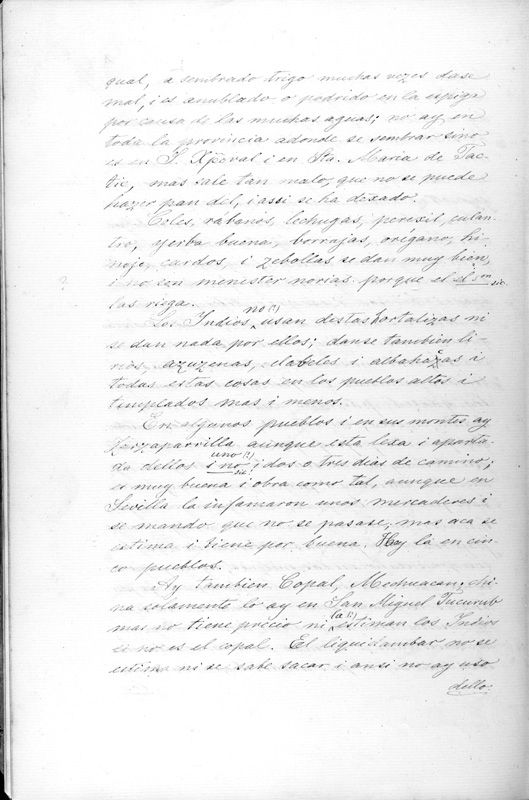 qual, a sembrado trigo muchas vezes dase
mal, i es anublado o podrido en la espiga
por causa de las muchas aguas; no ay en
toda la provincia adonde se sembrar sino
es en S. Xpeval i en Sta. Maria de Tac-
tic, mas sale tan malo, que no se puede
hazer pan del, i assi se ha dexado.
Coles, rábanos, lechugas, perexil, culan-
tro, yerba buena, borrajas, orégano, hi-
nojo, cardos, i zebollas se dan muy bien,
? i no son menister norias porque el el son sic.
las riega.
Los Indios no (?) usan destas hortalizas ni
se dan nada por ellos; danse tambien li-
rios, azuzenas, clabeles i albahazas i
todas estas cosas en los pueblos altos i
templados mas i menos.
En algunos pueblos i en sus montes ay
zarzaparrilla aunque esta lexa i aparta-
da dellos uno (?) i no sic. i dos o tres dias de camino;
es muy buena i obra como tal, aunque en
Sevilla la infamaron unos mercaderes i
se mando que no se pasase, mas aca se
estima i tiene por buena. Hay la en cin-
co pueblos.
Ay tambien Copal, Mechuacan, chi-
na solamente lo ay en San Miguel Tucurub
mas no tiene precio ni la (?) estiman los Indios
si no es el copal. El liquidambar no se
estima ni se sabe sacar i ansi no ay uso
dello.